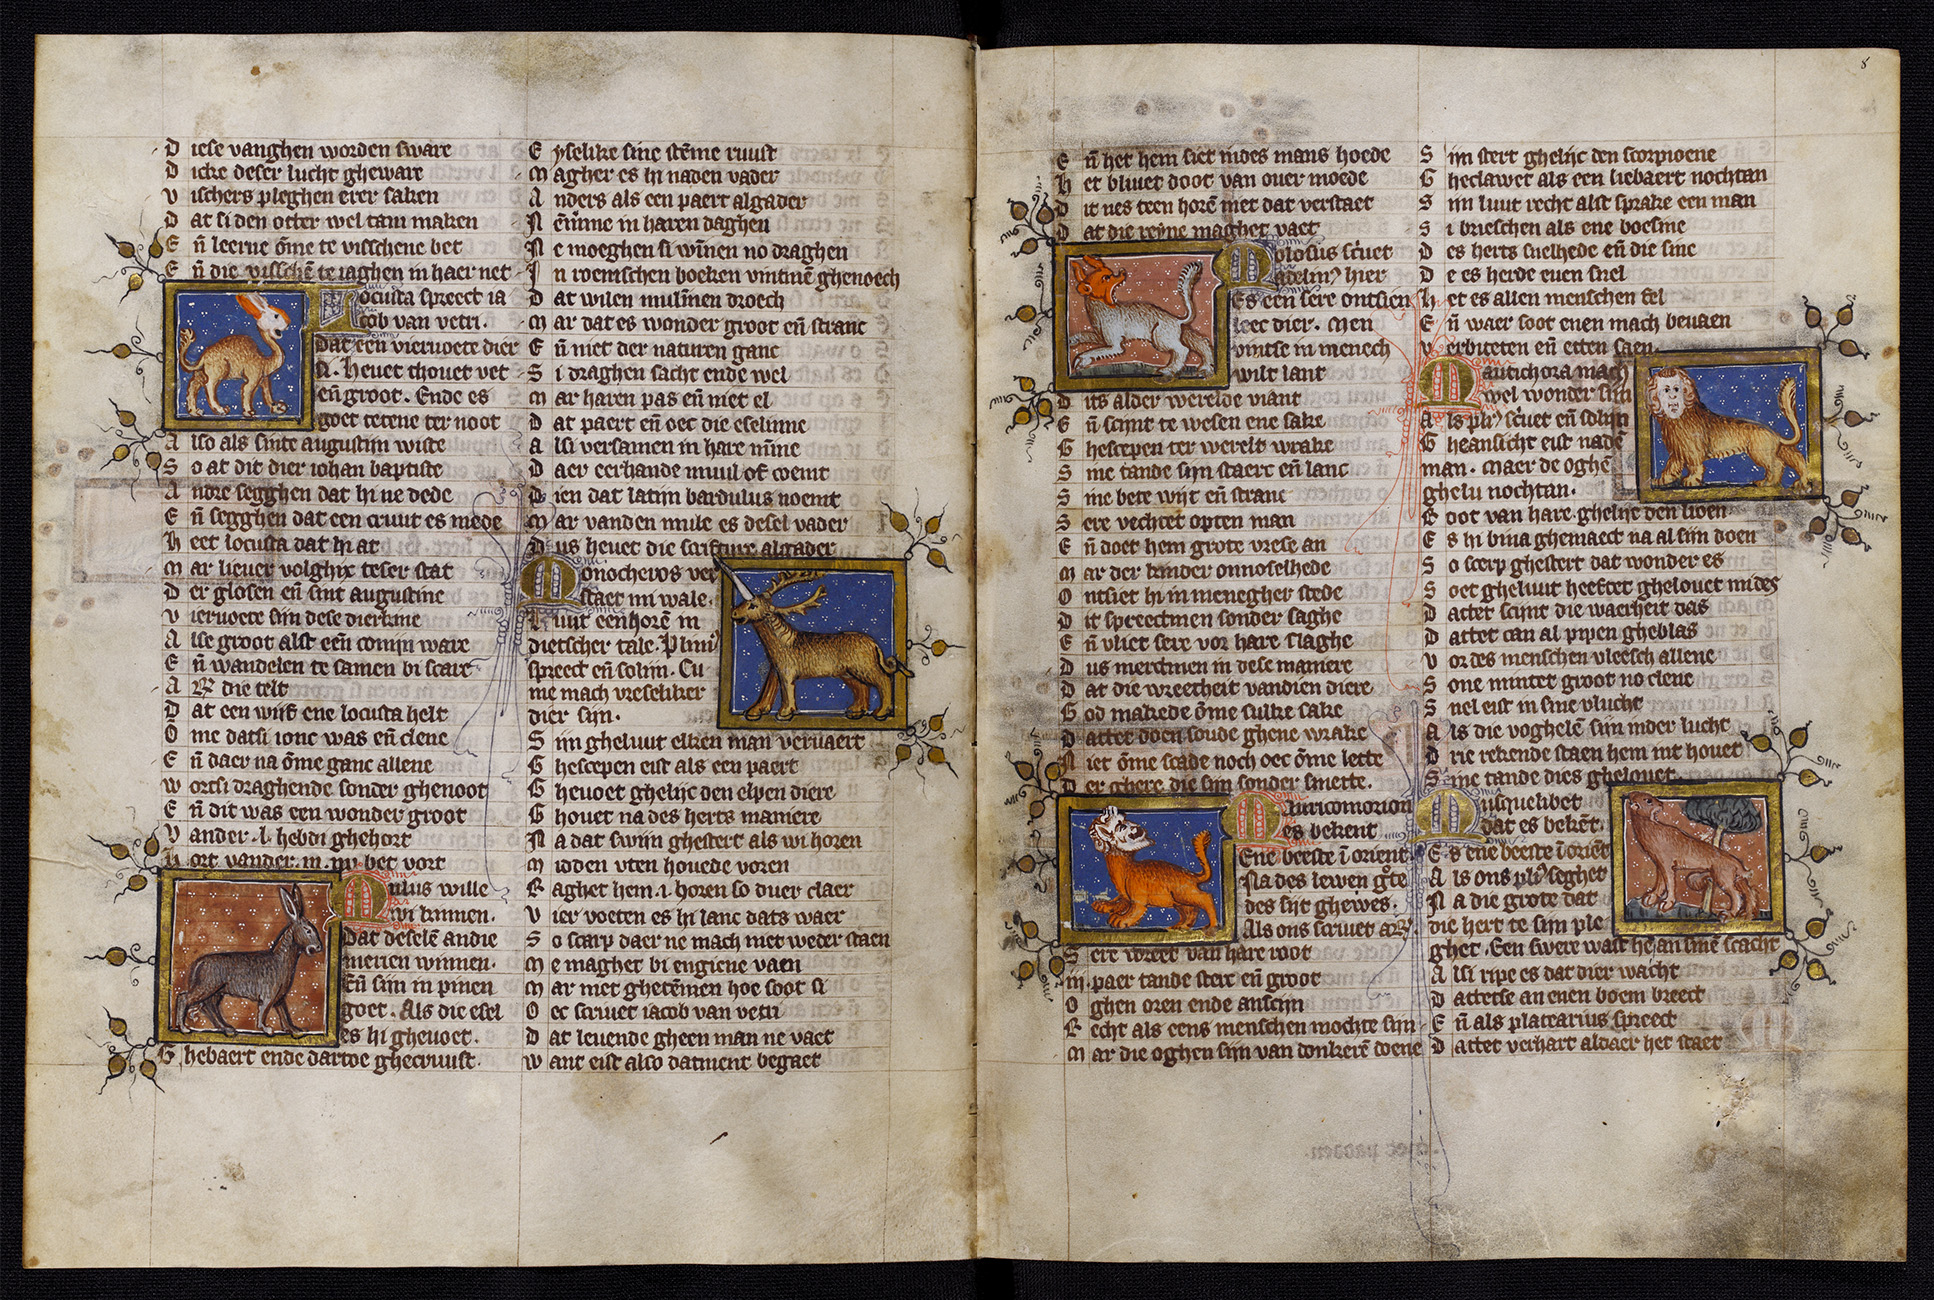 D iese vanghen worden sware
D icke deser lucht gheware
V isschers pleghen erer saken
D at si den otter wel tam maken
E n̄ leerne ōme te visschene bet
E n̄ die visschē te iaghen in haer net
Locusta spreect ia
cob van vetri.
Dat een viervoete dier
si. Hevet thovet vet
en̄ groot. Ende es
goet tetene ter noot
A lso als sinte augustijn wiste
S o at dit dier iohan baptiste
A ndre segghen dat hi ne dede
E n̄ segghen dat een cruut es mede
H eet locusta dat hi at
M ar liever volghix teser stat
D er glosen en̄ sint augustine
V iervoete sijn dese dierkine
A lse groot alst een conijn ware
E n̄ wandelen te samen bi scare
A R̄ die telt
D at een wijf ene locusta helt
O me datsi ionc was en̄ clene
E n̄ daer na ōme ganc allene
W ortsi draghende sonder ghenoot
E n̄ dit was een wonder groot
V ander .l. hebdi ghehort
H ort vander .m. nv bet vort
Mulus wille
wi kinnen.
Dat deselē andie
merien winnen.
En̄ sijn in pinen
goet. Als die esel
es hi ghevoet.
G hebaert ende dartoe ghecruust.
E yselike sine stēme ruust
M agher es hi naden vader
A nders als een paert algader
N ēmme in haren daghen
N e moeghen si wīnen no draghen
I n roemschen boeken vintmē ghenoech
D at wilen mulīnen droech
M ar dat es wonder groot en̄ stranc
E n̄ niet der naturen ganc
S i draghen sacht ende wel
M ar haren pas en̄ niet el
D at paert en̄ oec die eselinne
A lsi versamen in hare mīne
D aer eerhande muul of coemt
D ien dat latijn bardulus noemt
M ar vanden mule es desel vader
D us hevet die scrifture algader
Monocheros ver
staet mi wale.
Luut eenhorē in
dietscher tale. Plini
spreect en̄ solijn. Cu
me mach vreseliker
dier sijn.
S ijn gheluut elken man vervaert
G hescepen eist als een paert
G hevoet ghelijc den elpen diere
G hovet na des herts maniere
N a dat swijn ghestert als wi horen
M idden uten hovede voren
R aghet hem .i. horen so duer claer
V ier voeten es hi lanc dats waer
S o scarp daer ne mach niet weder staen
M e maghet bi engiene vaen
M ar niet ghetēmen hoe soot si
O ec scrivet iacob van vetri
D at levende gheen man ne vaet
W ant eist also datment begaet
8
E n̄ het hem siet mides mans hoede
H et blivet doot van over moede
D it nes teen horē niet dat verstaet
D at die reyne maghet vaet
Molosus scrivet
adelmꝰ hier
Es een sere ontsien
leec dier. Men
vintse in menech
wilt lant
D its alder werelde viant
E n̄ scijnt te wesen ene sake
G hescepen ter werelt wrake
S ine tande sijn staerc en̄ lanc
S ine bete wijt en̄ stranc
S ere vechtet opten man
E n̄ doet hem grote vrese an
M ar der kinder onnoselhede
O ntsiet hi in menegher stede
D it spreectmen sonder saghe
E n̄ vliet sere vor hare slaghe
D us merctmen in dese maniere
D at die wreetheit vandien diere
G od makede ōme sulke sake
D attet doen soude ghene wrake
N iet ōme scade noch oec ōme lette
D er ghere die sijn sonder smette.
Muricomorion
es bekent
Ene beeste ī orient
Na des lewen grōte
des sijt ghewes.
Als ons scrivet aR̄.
S ere wreet van hare root
iij. paer tande sterc en̄ groot
O ghen oren ende anscijn
R echt als eens menschen mochte sijn
M ar die oghen sijn van donkerē doene
S ijn stert ghelijc den scorpioene
G heclawet als een liebaert nochtan
S ijn luut recht alst sprake een man
S i brieschen als ene boesine
D es herts snelhede en̄ die sine
D e es herde even snel
H et es allen menschen fel
E n̄ waer soot enen mach bevaen
V erbiteten en̄ etten saen.
Mantichora mach
wel wonder sijn
A ls phiꝰ scrivet en̄ solijn
G heansicht eist nadē
man. Maer de oghē
ghelu nochtan.
R oot van hare ghelijc den lioen
E s hi bina ghemaect na al sijn doen
S o scerp ghestert dat wonder es
S oet gheluut heeftet ghelovet mides
D attet scijnt die waerheit das
D attet can al pipen gheblas
V or des menschen vleesch allene
S one mintet groot no clene
S nel eist in sine vlucht
A ls die voghelē sijn inder lucht
D rie rekende staen hem int hovet
S ine tande dies ghelovet
Musquelibet
dat es bekēt.
E s ene beeste ī oriēt
A ls ons plijꝰ seghet
N a die grote dat
die hert te sijn ple
ghet. Een swere wast he an sine scacht
A lsi ripe es dat dier wacht
D attetse an enen boem breect
E n̄ als platearius spreect
D attet verhart aldaer het staet